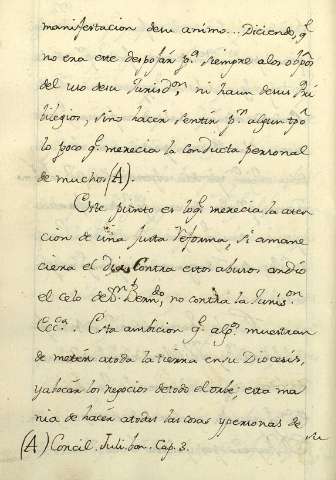 manifestacion de su animo... Diciendo, q.e
no era este despojàr p.a siempre a los obpõs
del uso de su Jurisd.on, ni haun de sus Pri
bilegios, sino hacèr sentir p.r algun tpõ
lo poco q.e merecia la conducta personal
de muchos (A).
Este punto es lo q.e merecia la aten
cion de una Justa reforma,
el Contra estos abusos
el celo de no contra la Juris.on
Ecc.ca. Esta ambicion q.e muestran
de metèr a toda la tierra en su Diocesis,
y abocàr los negocios de todo el orbe; esta ma
nia de hacèr a todas las cosas y personas de
(A) Concil. Cap. 3.